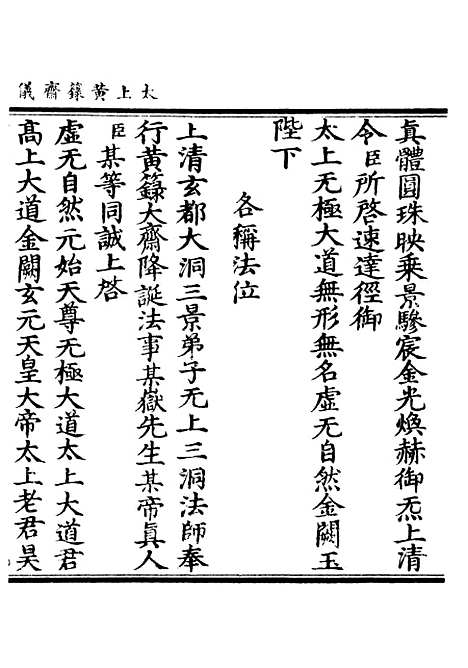 太上黄籙齋儀
真體圓珠映乘景驂宸金光煥赫御炁上清
令臣所啓速達徑御
太上无極大道無形無名虛无自然金闕玉
陛下
各稱法位
上清玄都大洞三景弟子无上三洞法師奉
行黄籙大齋降誕法事某嶽先生某帝真人
臣某等同誠上啓
虛无自然元始天尊无極大道太上大道君
高上大道金闕玄元天皇大帝太上老君昊